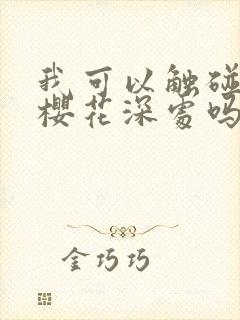 我可以触碰
樱花深处吗
金巧巧